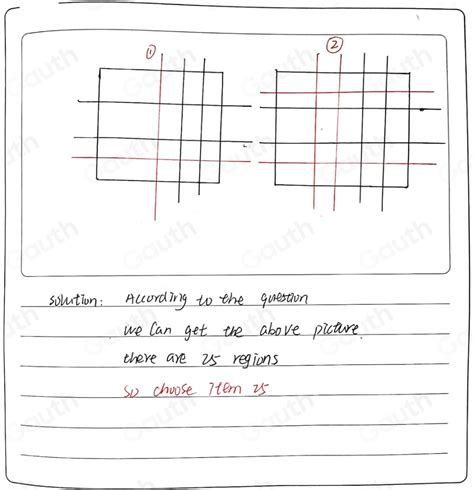 ① ②
solution: According to the question
we can get the above picture.
there are 25 regions
so choose item 25
Gauth